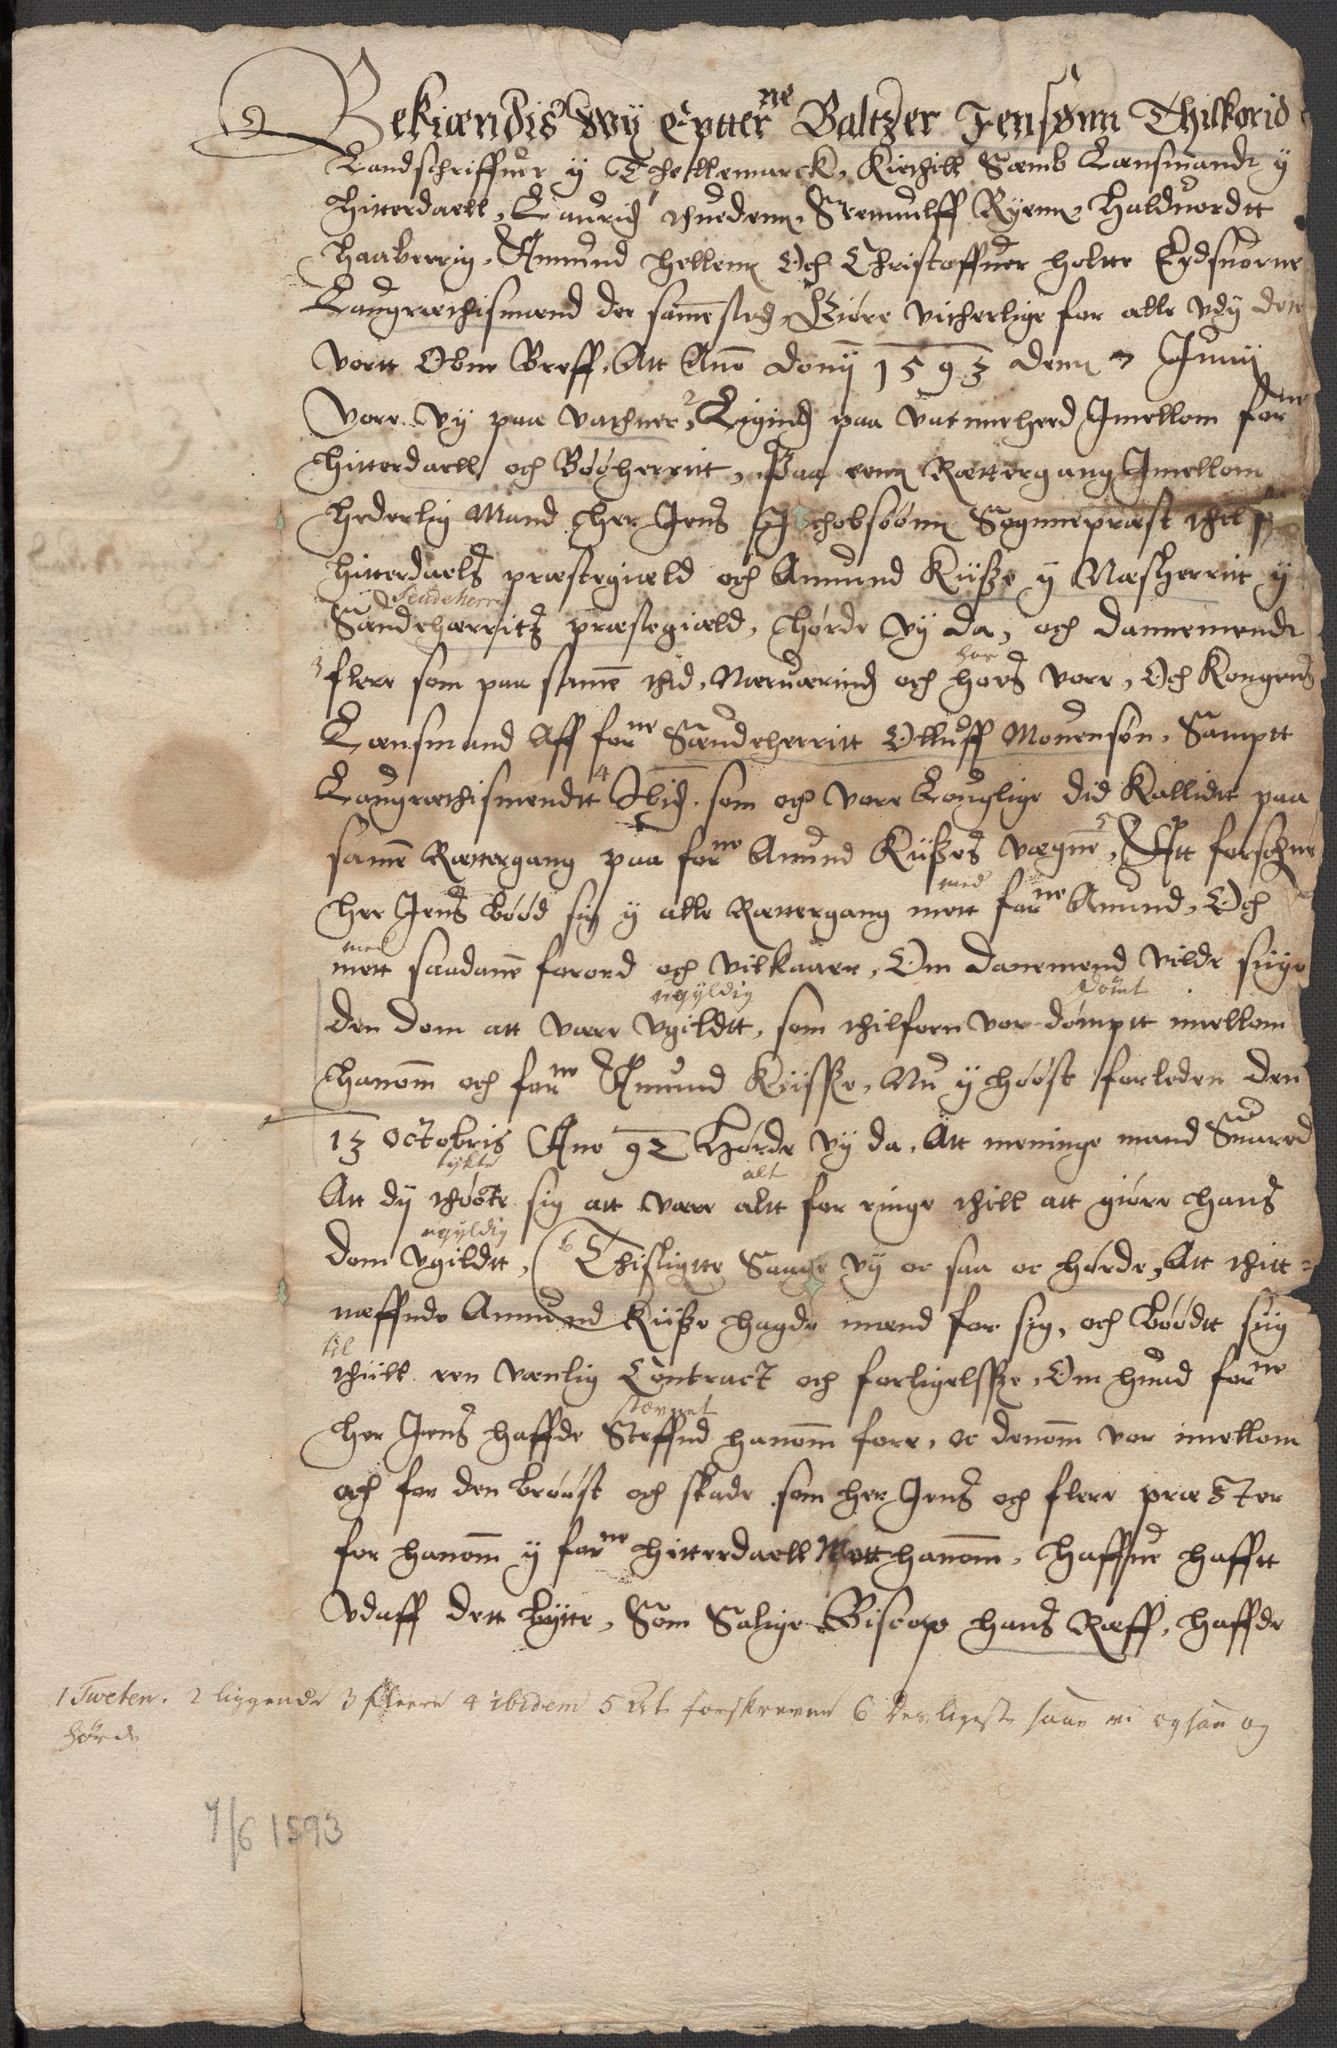 Bekiændis Wy Eptterne Baltzer Jensønn Thilkorid
Landschriffuer y Thellemarck, Kiethill Sæmb Lænsmandt y
Hitterdaell, Lauridz 1 thuedenn, Stenuulff Ryenn, Halduordtt
Haaberrig, Amund Hellenn Och Christoffuer Holtte Eydsuorne
Laugrættismend der sammesteds, Giøre vitherlige for alle vdy dete
vortt Obne Breff, Att Anno Domij 1593 denn 7 Junij
Vore vy paa Vathner, 2 Ligindis paa Vatneherd Jmellom forne
Hitterdaell och Bööherritt, Paa eenn Rættergang Jmellom
Hederlig Mand Her Jens Jachobsöönn Sognneprest thil
Hitterdaels præstegiæld och Amund Küsze y Næsherritt y
Sendeherre
Sændehærritz præstegiæld, Hørde vy da, och Dannemendt
3 flere som paa samme thid, Neruærindis och hoes vore, Och Kongens
hos
Lænsmand Aff forne Sændeherritt Olluff Mouensøn, Samptt
Laugrættismendtt 4 Ibid. som och vore Louglige did Kallidtt paa
samme Rættergang paa forne Amund Küszes vægne, 5 Att forschne
Her Jens bööd sig y alle Rættergang mett forne Amund, Och
med
med
mett saadanne forord och vilkaaer, Om Danemend vilde sige
ugyldig dömt
den dom att være vgildtt, som thilforn vor dømptt imellom
Hanomm och forne Amund Küssze, Nu y Hööst forleden den
13 Octobris Ano 92 Hørde vy da, Att meninge mand Suared
tykte alt
Att dy thöcte sig att være altt for ringe thill att giöre Hans
ugyldig
dom vgildtt, 6 Thisligtte Saage vy oc saa oc hørde, Att thitt=
næffnde Amund Küsze Hagde mænd for sig, och böödtt sig
til
thiill een venlig Contract och forligelssze, Om huad forne
stævnet
Her Jens Haffde Steffnd Hanomm fore, oc denomm vor imellom
och for den bröust och skade som Her Jens och flere præster
for Hanomm y forne Hitterdaell Mett Hanomm, Haffue Hafftt
Vdaff dett bytte, Som Salige Biscop Hans Ræff, Haffde
1 Tweten. 2 liggende 3 fleere 4 ibidem 5 At forskrevne 6 desligeste saae vi ogsaa og
hørde
7/6 1593